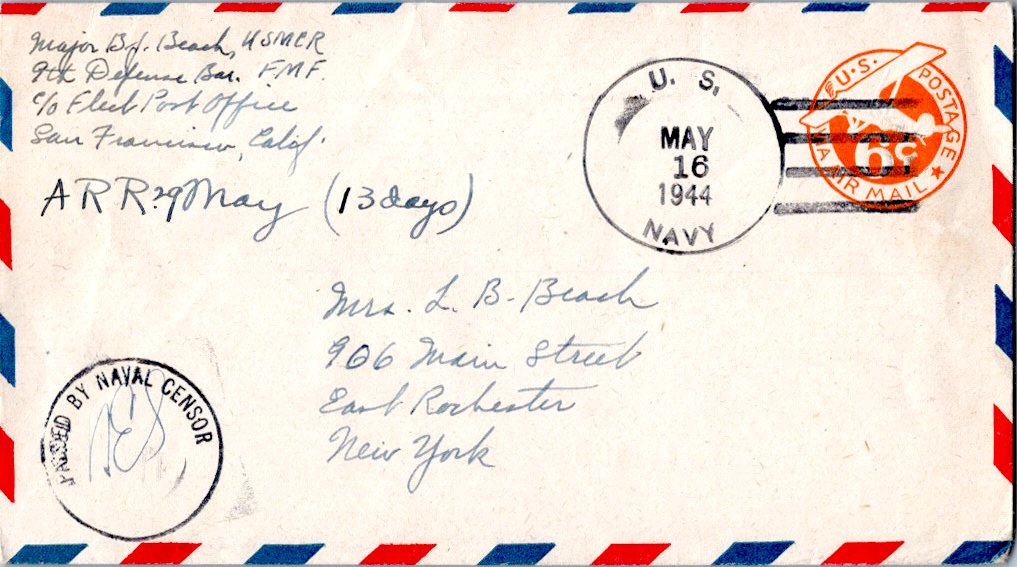 Major B.J. Beach, USMCR
9th Defense Bn. FMF.
c/o Fleet Post Office
San Francisco, Calif.
ARR. 29 May (13 days)
U. S.
MAY
16
1944
NAVY
U.S. POSTAGE
6¢
AIR MAIL
Mrs. L. B. Beach
906 Main Street
East Rochester
New York
PASSED BY NAVAL CENSOR